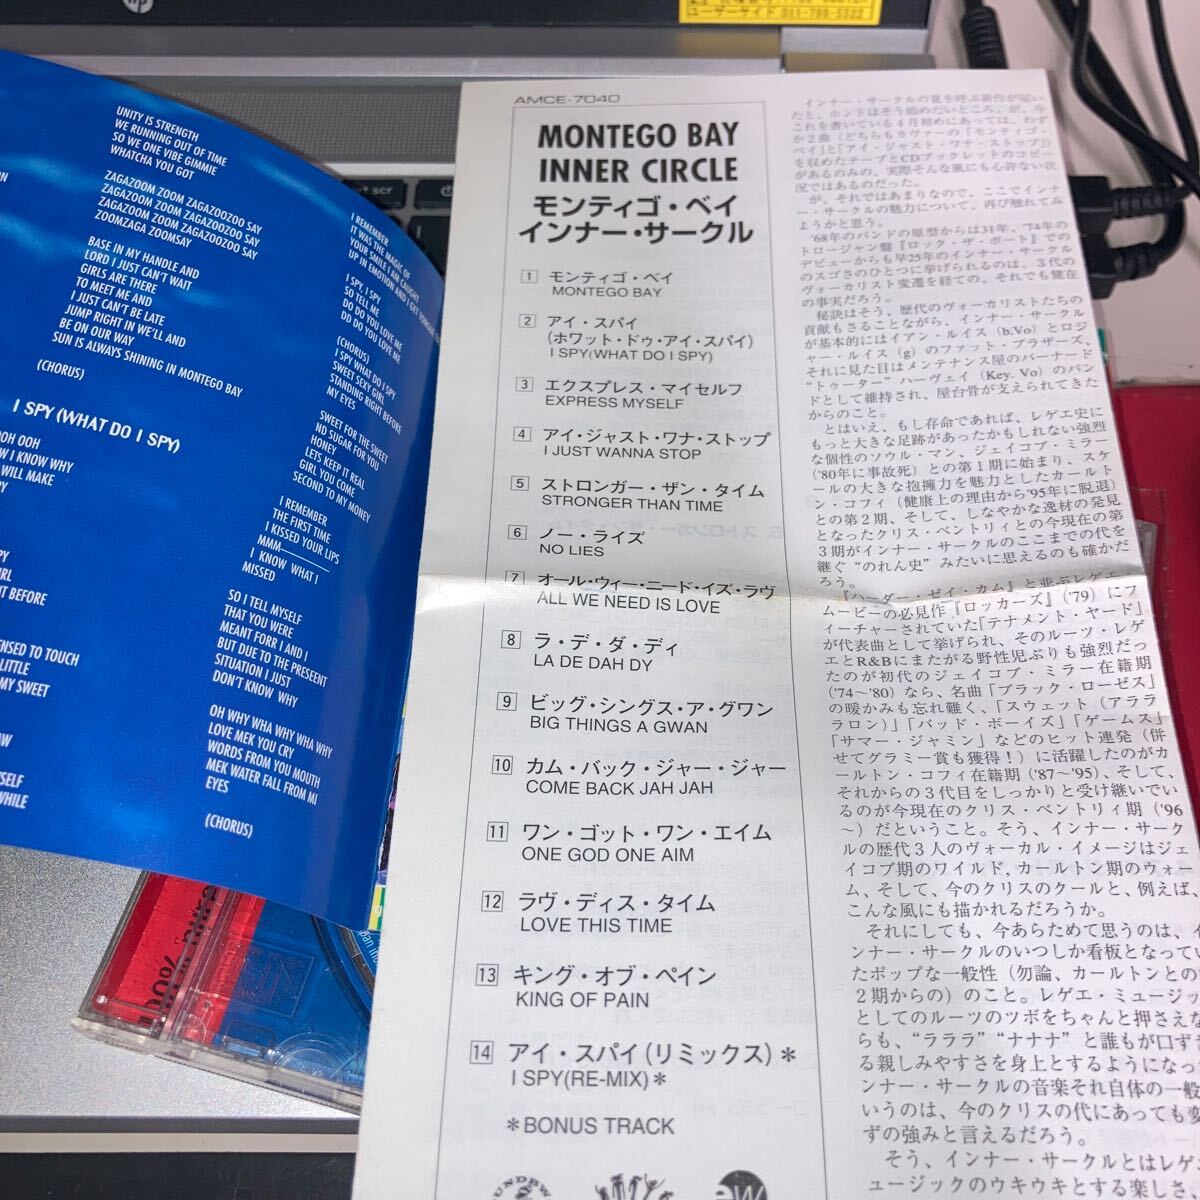 ユーザーサイド 011-788-5522
hp
UNITY IS STRENGTH
WE RUNNING OUT OF TIME
SO WE ONE VIBE GIMMIE
WHATCHA YOU GOT
ZAGAZOOM ZOOM ZAGAZOOZOO SAY
ZAGAZOOM ZOOM ZAGAZOOZOO SAY
ZAGAZOOM ZOOM ZAGAZOOZOO SAY
ZOOMZAGA ZOOMSAY
BASE IN MY HANDLE AND
LORD I JUST CAN'T WAIT
GIRLS ARE THERE
TO MEET ME AND
I JUST CAN'T BE LATE
JUMP RIGHT IN WE'LL AND
BE ON OUR WAY
SUN IS ALWAYS SHINING IN MONTEGO BAY
(CHORUS)
I SPY (WHAT DO I SPY)
OOH OOH
W I KNOW WHY
WILL MAKE
PY
PY
GIRL
T BEFORE
ENSED TO TOUCH
LITTLE
MY SWEET
AW
YSELF
WHILE
I REMEMBER
IT WAS THE MAGIC OF
YOUR SMILE I AM CAUGHT
UP IN EMOTION AND I GET TONGUE
I SPY, I SPY
SO TELL ME
DO DO YOU LOVE ME
DO DO YOU LOVE ME
(CHORUS)
I SPY WHAT DO I SPY
SWEET SEXY GIRL
STANDING RIGHT BEFORE
MY EYES
SWEET FOR THE SWEET
ND SUGAR FOR YOU
HONEY
LETS KEEP IT REAL
GIRL YOU COME
SECOND TO MY MONEY
I REMEMBER
THE FIRST TIME
I KISSED YOUR LIPS
MMM
I KNOW WHAT I
MISSED
SO I TELL MYSELF
THAT YOU WERE
MEANT FORR I AND I
BUT DUE TO THE PRESEENT
SITUATION I JUST
DON'T KNOW WHY
OH WHY WHA WHY WHA WHY
LOVE MEK YOU CRY
WORDS FROM YOU MOUTH
MEK WATER FALL FROM MI
EYES
(CHORUS)
AMCE-7040
MONTEGO BAY
INNER CIRCLE
モンティゴ・ベイ
インナー・サークル
1 モンティゴ・ベイ
MONTEGO BAY
2 アイ・スパイ
(ホワット・ドゥ・アイ・スパイ)
I SPY(WHAT DO I SPY)
3 エクスプレス・マイセルフ
EXPRESS MYSELF
4 アイ・ジャスト・ワナ・ストップ
I JUST WANNA STOP
5 ストロンガー・ザン・タイム
STRONGER THAN TIME
6 ノー・ライズ
NO LIES
7 オール・ウィー・ニード・イズ・ラヴ
ALL WE NEED IS LOVE
8 ラ・デ・ダ・ディ
LA DE DAH DY
9 ビッグ・シングス・ア・グワン
BIG THINGS A GWAN
10 カム・バック・ジャー・ジャー
COME BACK JAH JAH
11 ワン・ゴット・ワン・エイム
ONE GOD ONE AIM
12 ラヴ・ディス・タイム
LOVE THIS TIME
13 キング・オブ・ペイン
KING OF PAIN
14 アイ・スパイ(リミックス)＊
I SPY(RE-MIX)＊
＊BONUS TRACK
インナー・サークルの夏を呼ぶ新作が届い
たと、ホントはそう始めたいところ。が、今
これを書いている４月初めにあっては、わず
か２曲（どちらもカヴァーの「モンティゴ・
ベイ」と「アイ・ジャスト・ワナ・ストップ」）
を収めたテープとCDブックレットのコピー
があるのみの、実際そんな風にも心許ない状
況ではあるのだった。
が、それではあまりなので、ここでインナ
ー・サークルの魅力について、再び触れてみ
ようかと思う。
'68年のバンドの原型からは31年、'74年の
トロージャン盤『ロック・ザ・ボート』での
デビューからも早25年のインナー・サークル
のスゴさのひとつに挙げられるのは、３代の
ヴォーカリスト変遷を経ての、それでも健在
の事実だろう。
秘訣はそう、歴代のヴォーカリストたちの
貢献もさることながら、インナー・サークル
が基本的にはイアン・ルイス（b.Vo）とロジ
ャー・ルイス（g）のファット・ブラザーズ、
それに見た目はメンテナンス屋のバーナード
“トゥーター”ハーヴェイ（Key. Vo）のバン
ドとして維持され、屋台骨が支えられてきた
からのこと。
とはいえ、もし存命であれば、レゲエ史に
もっと大きな足跡があったかもしれない強烈
な個性のソウル・マン、ジェイコブ・ミラー
（'80年に事故死）との第１期に始まり、スケ
ールの大きな抱擁力を魅力としたカールト
ン・コフィ（健康上の理由から'95年に脱退）
との第２期、そして、しなやかな逸材の発見
となったクリス・ベントリィとの今現在の第
３期がインナー・サークルのここまでの代を
継ぐ“のれん史”みたいに思えるのも確かだ
ろう。
『ハーダー・ゼイ・カム』と並ぶレゲエ・
ムービーの必見作『ロッカーズ』（'79）にフ
ィーチャーされていた「テナメント・ヤード」
が代表曲として挙げられ、そのルーツ・レゲ
エとR&Bにまたがる野性児ぶりも強烈だっ
たのが初代のジェイコブ・ミラー在籍期
（'74～'80）なら、名曲「ブラック・ローゼス」
の暖かみも忘れ難く、「スウェット（アララ
ラロン）」「バッド・ボーイズ」「ゲームス」
「サマー・ジャミン」などのヒット連発（併
せてグラミー賞も獲得！）に活躍したのがカ
ールトン・コフィ在籍期（'87～'95）、そして、
それからの３代目をしっかりと受け継いでい
るのが今現在のクリス・ベントリィ期（'96
～）だということ。そう、インナー・サーク
ルの歴代３人のヴォーカル・イメージはジェ
イコブ期のワイルド、カールトン期のウォー
ム、そして、今のクリスのクールと、例えば、
こんな風にも描かれるだろうか。
それにしても、今あらためて思うのは、イ
ンナー・サークルのいつしか看板となってい
たポップな一般性（勿論、カールトンとの
２期からの）のこと。レゲエ・ミュージッ
としてのルーツのツボをちゃんと押さえな
らも、“ラララ”“ナナナ”と誰もが口ずさ
る親しみやすさを身上とするようになっ
ンナー・サークルの音楽それ自体の一般
いうのは、今のクリスの代にあっても変
ずの強みと言えるだろう。
そう、インナー・サークルとはレゲ
ュージックのウキウキとする楽しさ